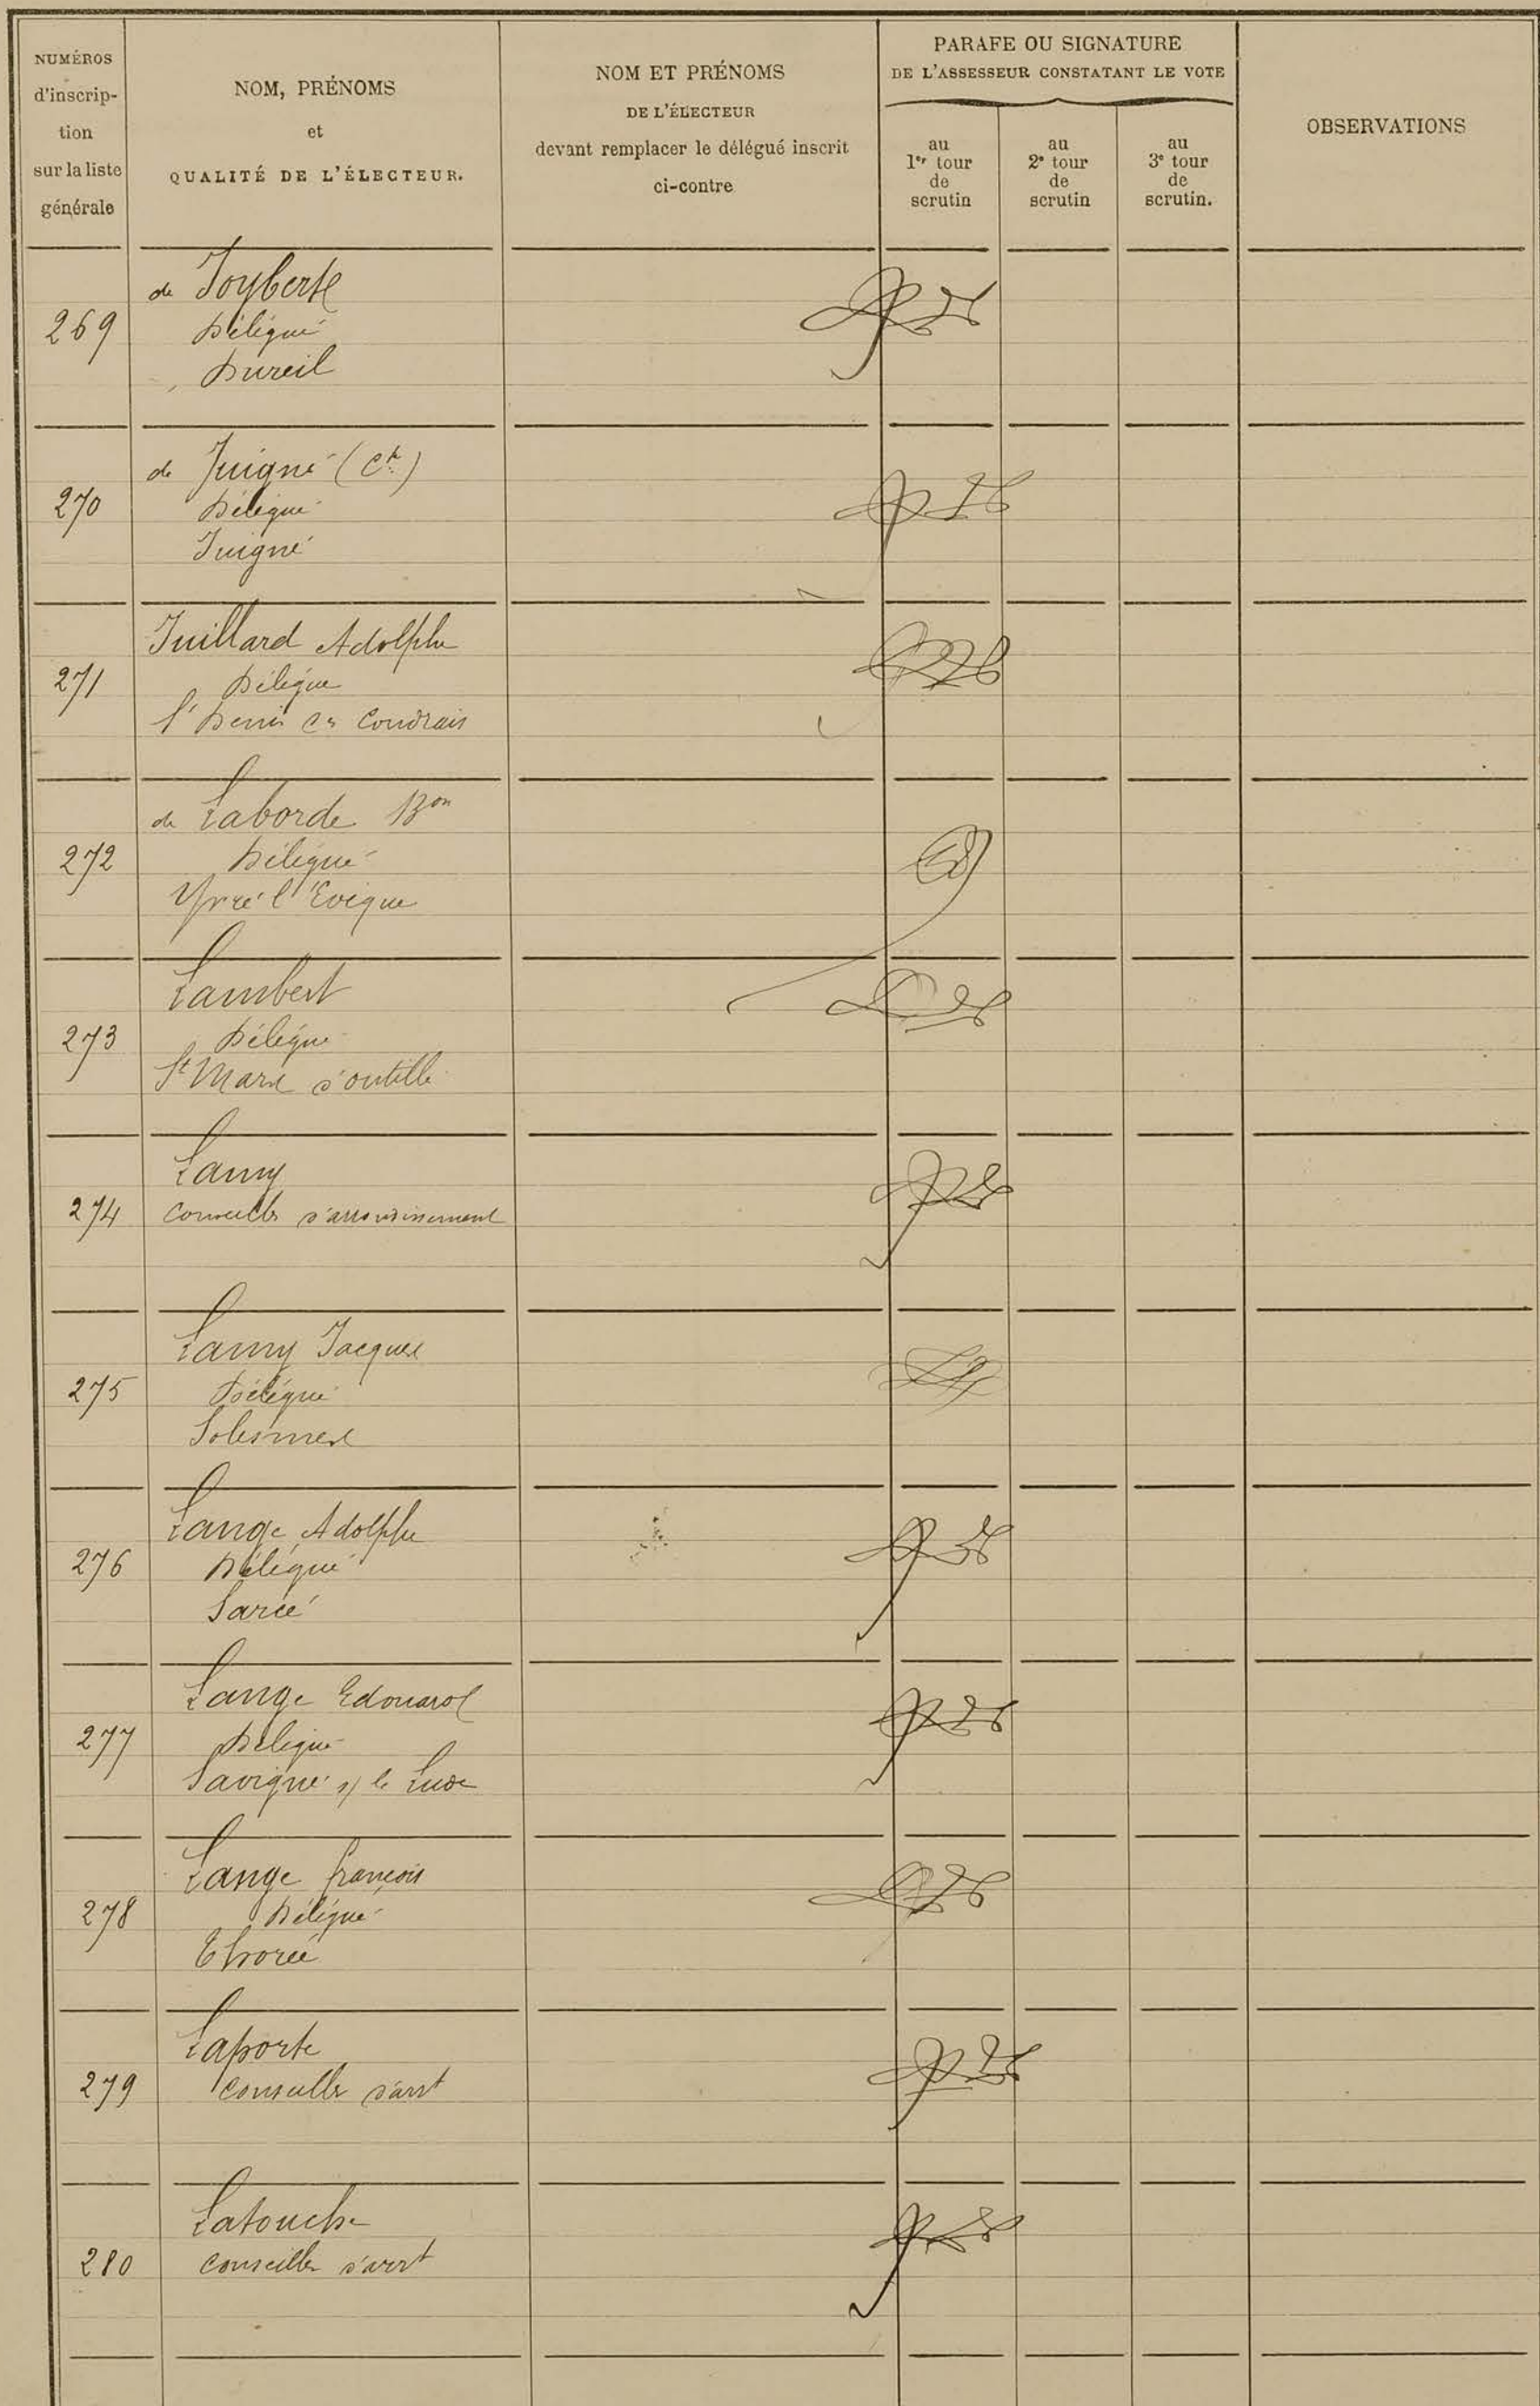 NUMÉROS
d'inscrip-
tion
sur la liste
générale
NOM, PRÉNOMS
et
QUALITÉ DE L'ÉLECTEUR.
NOM ET PRÉNOMS
DE L'ÉLECTEUR
devant remplacer le délégué inscrit
ci-contre
PARAFE OU SIGNATURE
DE L'ASSESSEUR CONSTATANT LE VOTE
au
1er tour
de
scrutin
au
2e tour
de
scrutin
au
3e tour
de
scrutin.
OBSERVATIONS
de Joybert
269
Délégué
Dureil
de Juigné (
270
Délégué
Juigné
Juillard Adolphe
271
Délégué
St Denis des Coudrais
de Laborde Bon
272
Délégué
Yvré l'Evêque
Lambert
273
Délégué
St Mars d'outillé
Lamy
274
Conseiller d'arrondissement
Lamy Jacques
275
Délégué
Solesmes
Lange Adolphe
276
Délégué
Sarcé
Lange Edouard
277
Délégué
Savigné s/ le Lude
Lange françois
278
Délégué
Thorée
Laporte
279
Conseiller d'arrt
Latouche
280
Conseiller d'arrt